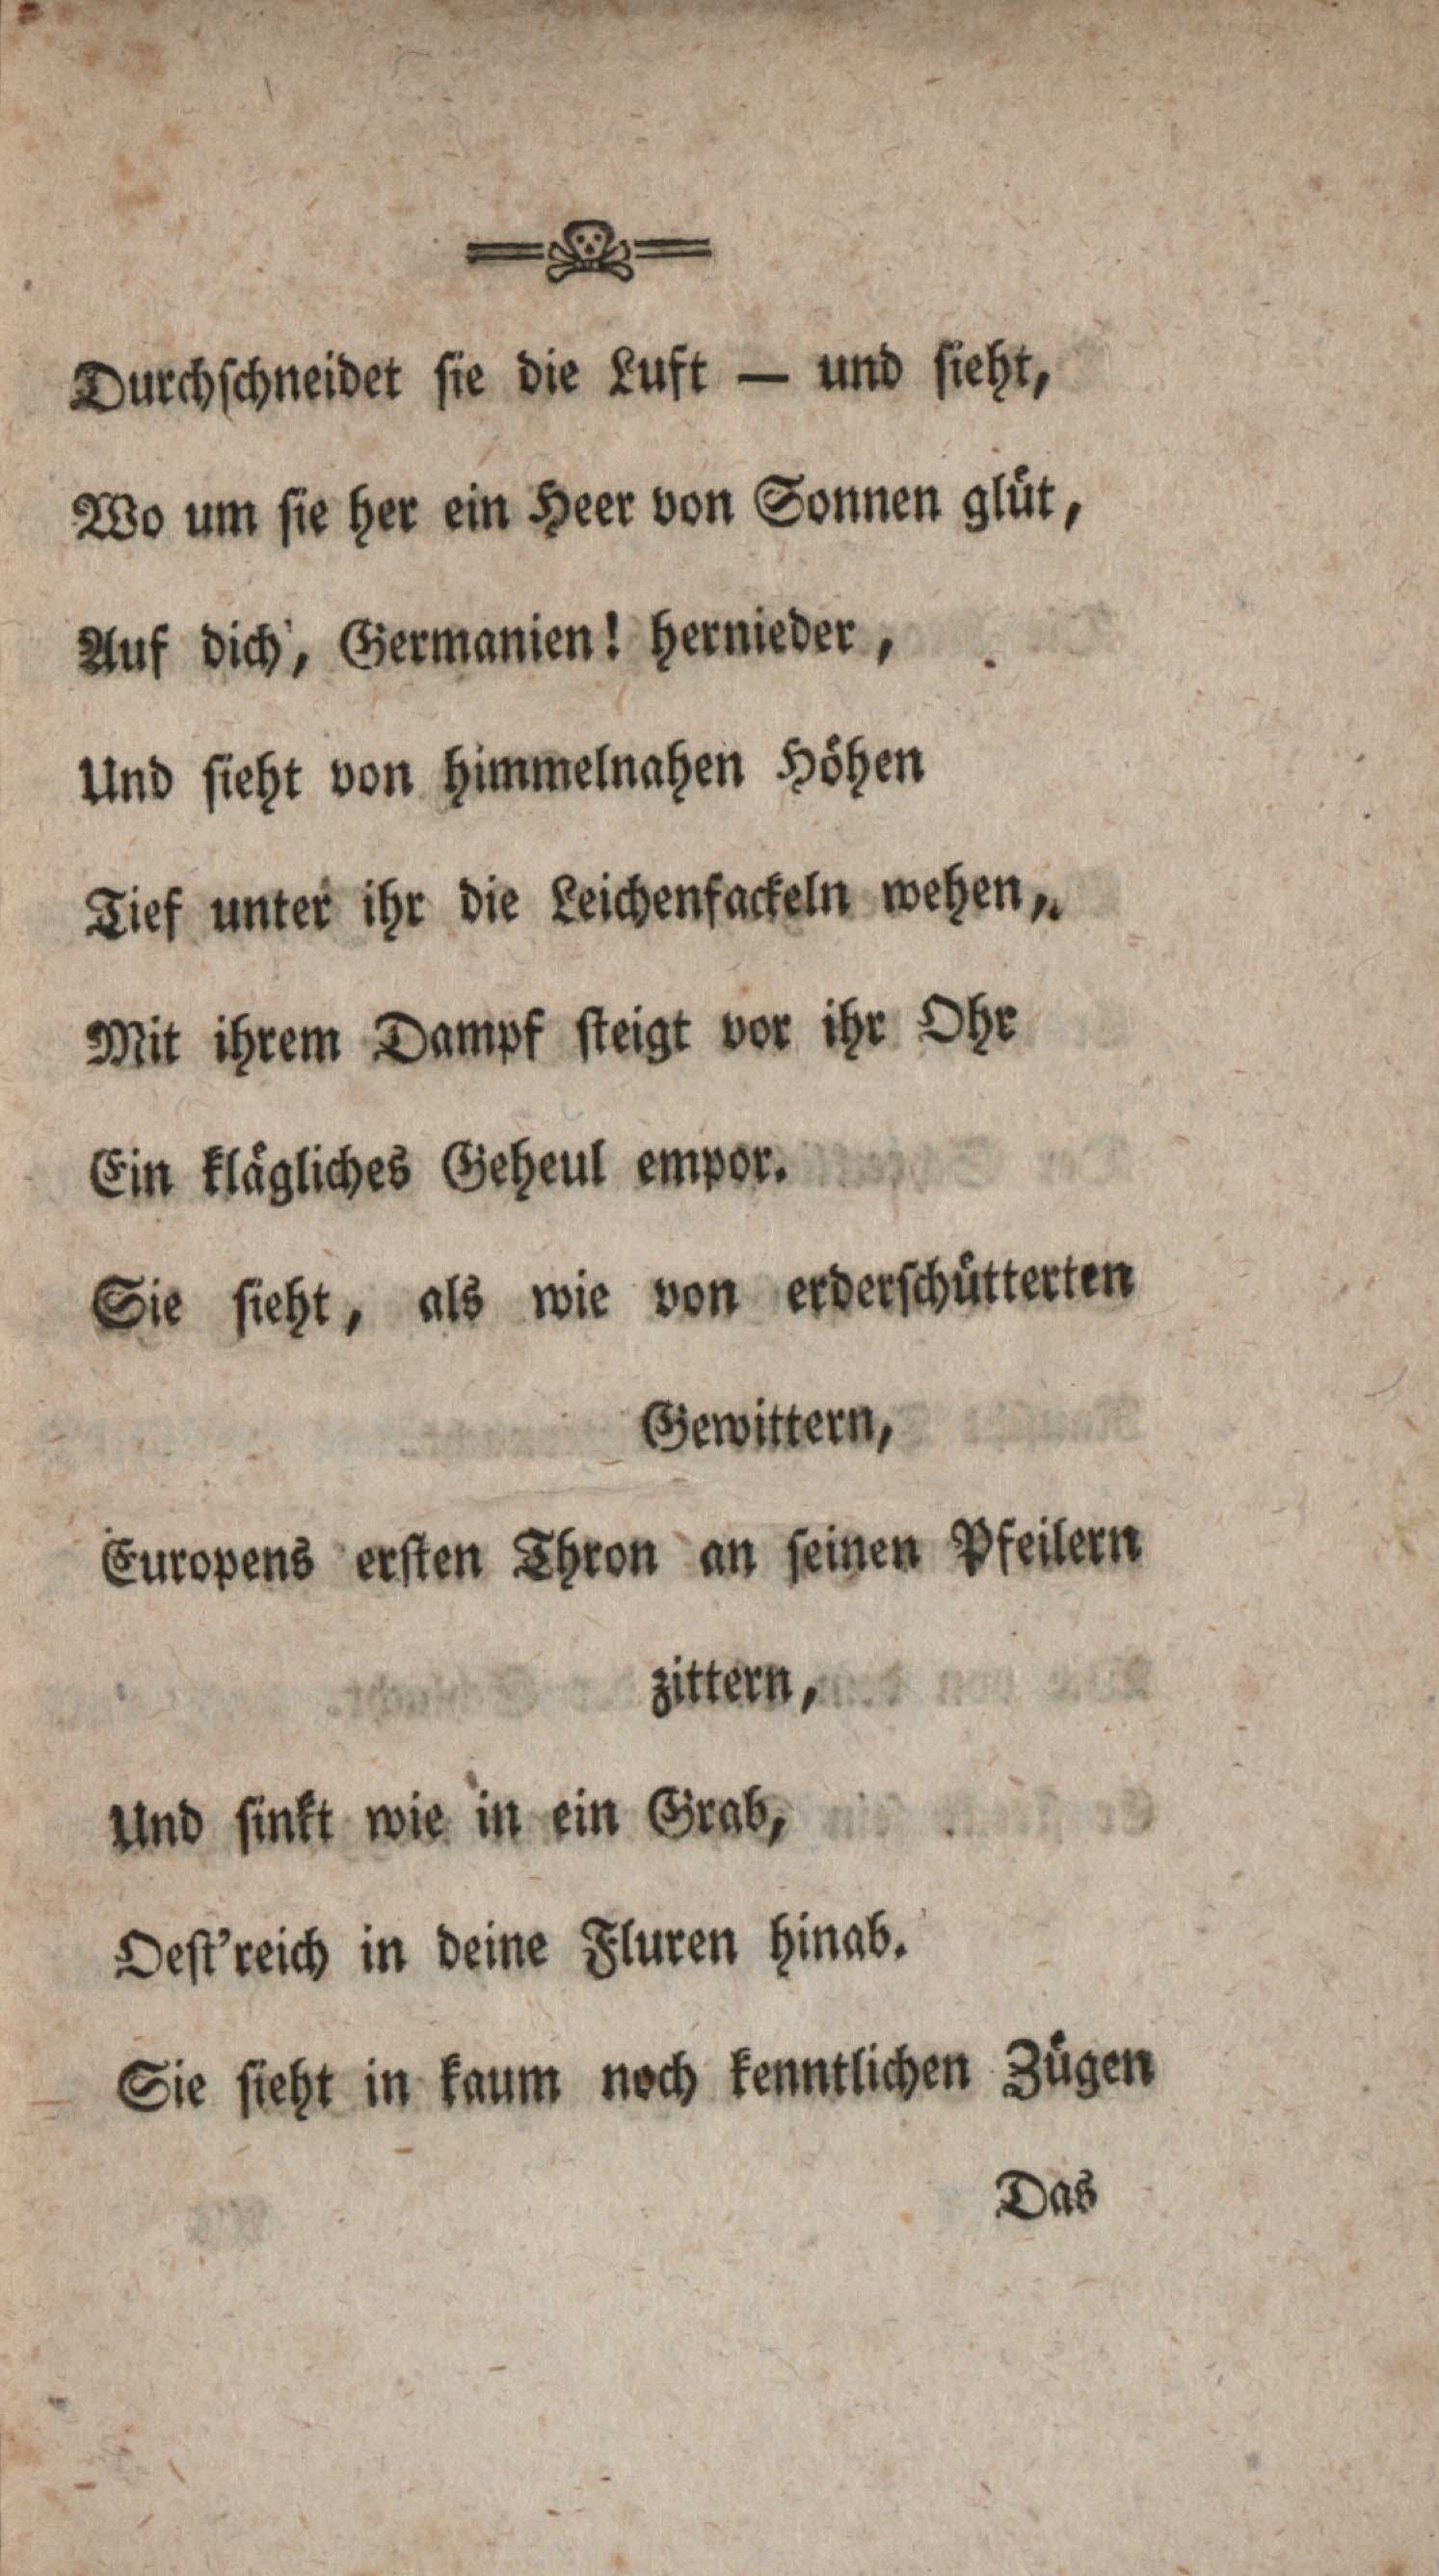 Durchſchneidet ſie die Luft — und ſieht,
Wo um ſie her ein Heer von Sonnen gluͤt,
Auf dich, Germanien! hernieder,
Und ſieht von himmelnahen Hoͤhen
Tief unter ihr die Leichenfackeln wehen,
Mit ihrem Dampf ſteigt vor ihr Ohr
Ein klaͤgliches Geheul empor.
Sie ſieht, als wie von erderſchuͤtterten
Gewittern,
Europens erſten Thron an ſeinen Pfeilern
zittern,
Und ſinkt wie in ein Grab,
Oeſt'reich in deine Fluren hinab.
Sie ſieht in kaum noch kenntlichen Zuͤgen
Das